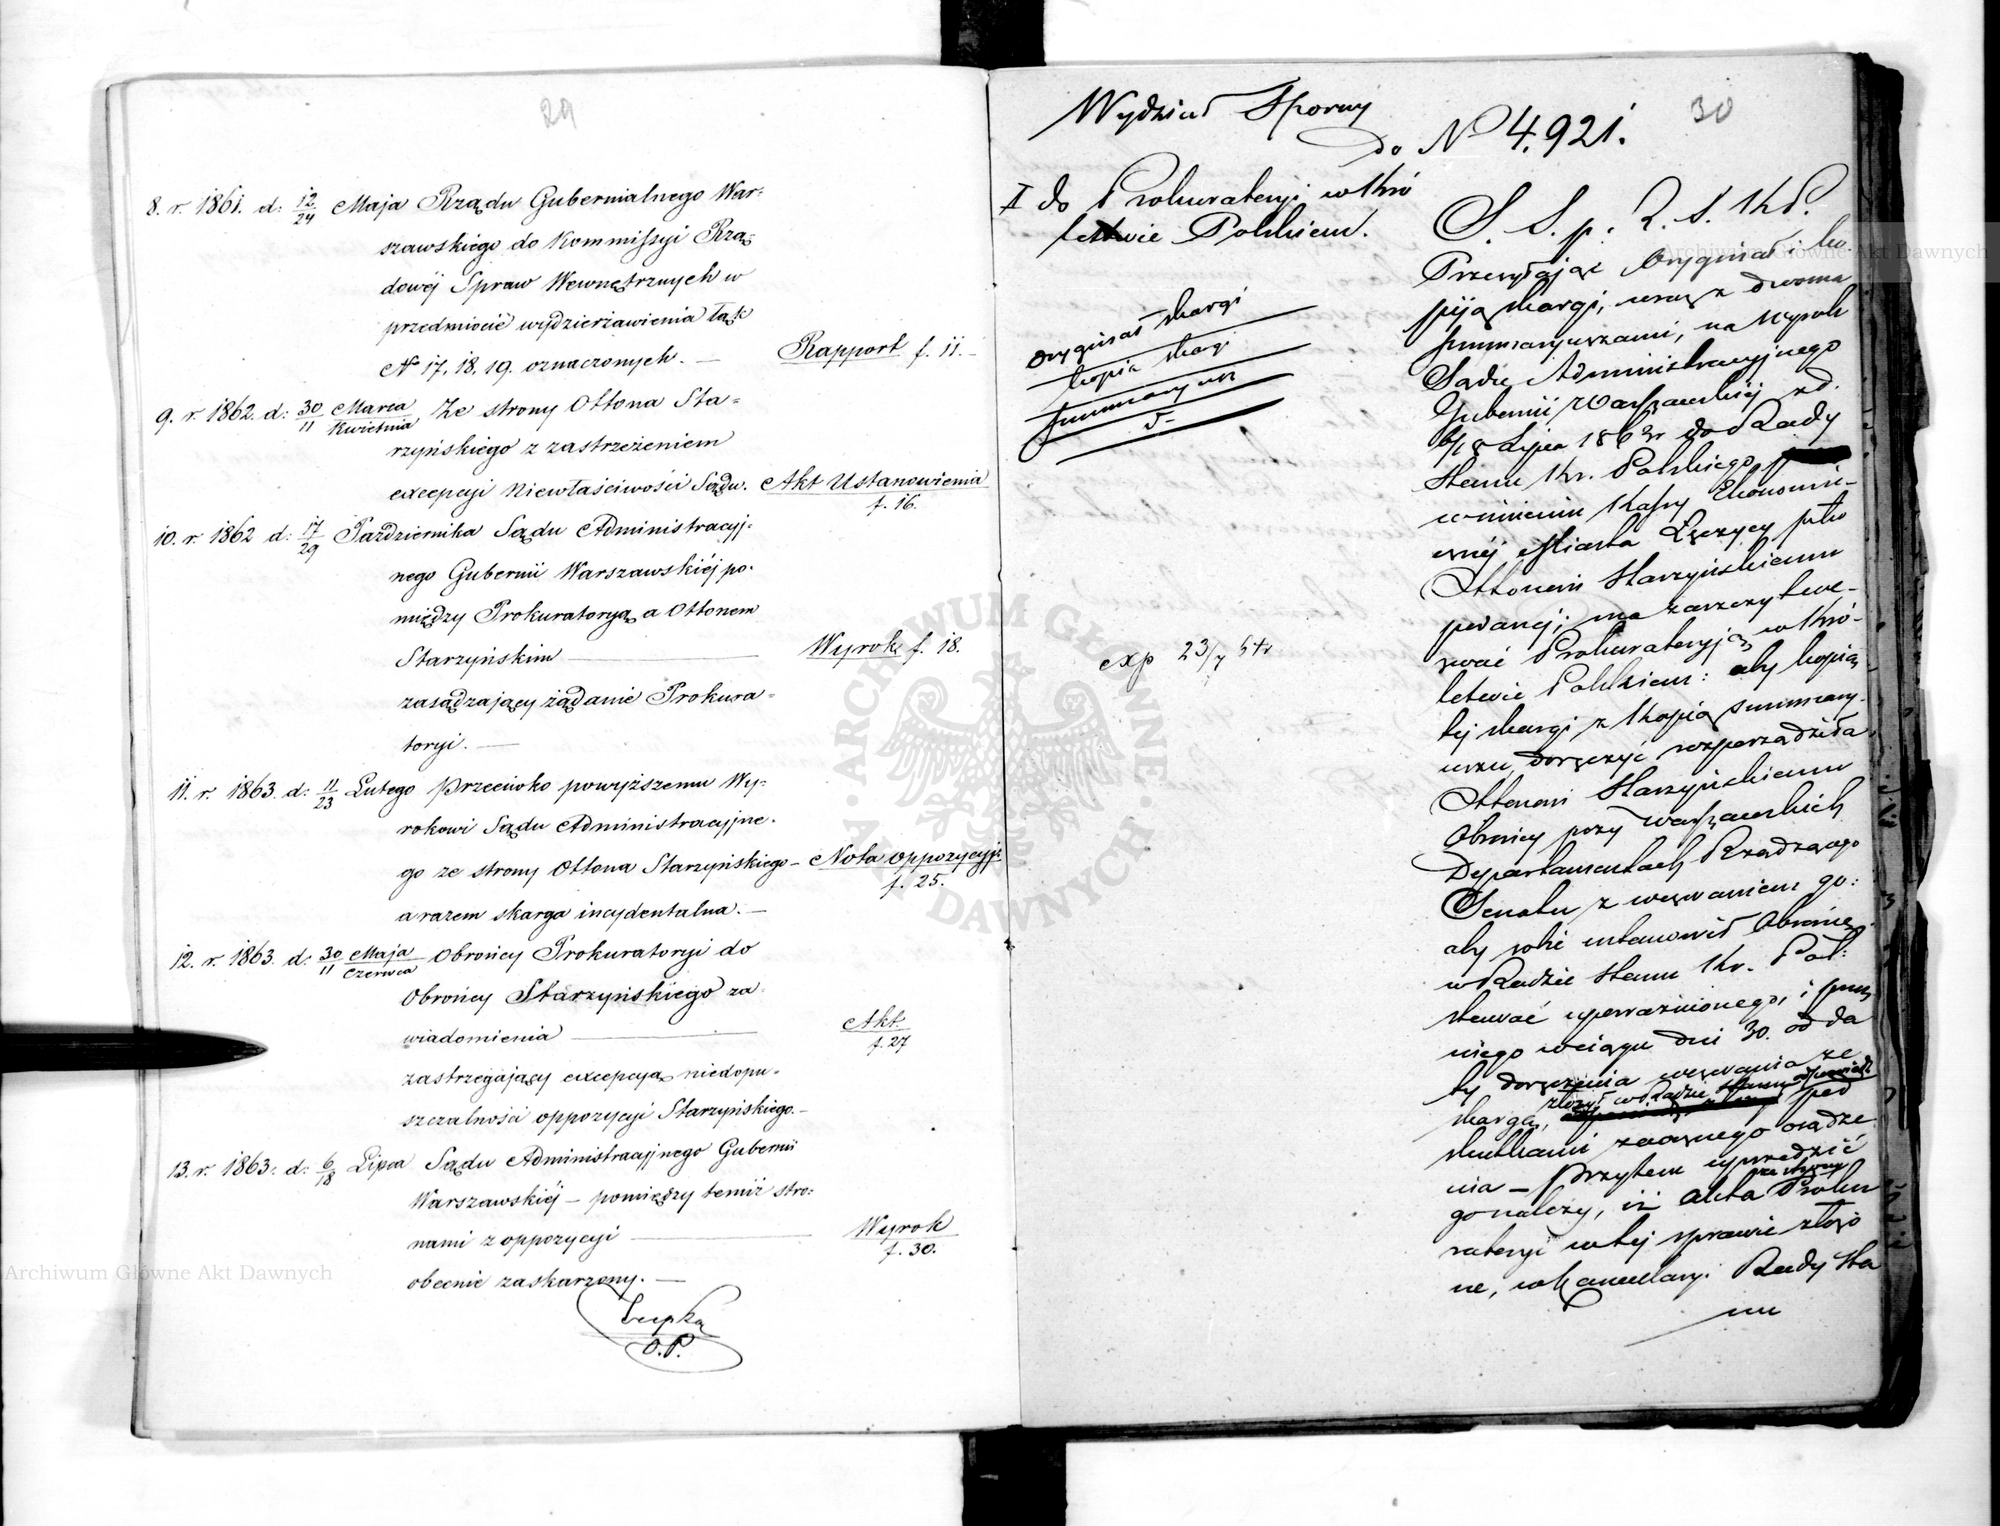 29
8. r. 1861. d: 12/24 Maja Rządu Gubernialnego War=
szawskiego do Kommissyi Rzą=
dowéj Spraw Wewnętrznych w
przedmiocie wydzierżawienia łąk
No 17, 18, 19. oznaczonych. — Rapport f. 11.
9. r. 1862. d: 30/11 Marca/Kwietnia, Ze strony Ottona Sta=
rzyńskiego z zastrzeżeniem
excepcyi Niewłaściwości Sądu. Akt Ustanowienia
f. 16.
10. r. 1862 d: 17/29 Października Sądu Administracyj=
nego Gubernii Warszawskiéj po=
między Prokuratoryą a Ottonem
Starzyńskim — Wyrok f. 18.
zasądzający żądanie Prokura=
toryi. —
11. r. 1863. d: 11/23 Lutego Przeciwko powyższemu Wy=
rokowi Sądu Administracyjne=
go ze strony Ottona Starzyńskiego — Nota oppozycyjn
f. 25.
a razem skarga incydentalna. —
12. r. 1863. d: 30/11 Maja/Czerwca Obrońcy Prokuratoryi do
Obrońcy Starzyńskiego za=
wiadomienia — Akt
f. 27
zastrzegający excepcyą niedopu=
szczalności oppozycyi Starzyńskiego. —
13. r. 1863. d: 6/18 Lipca Sądu Administracyjnego Gubernii
Warszawskiéj — pomiędzy temiż stro=
nami z oppozycyi — Wyrok
f. 30.
obecnie zaskarżony. —
O.P.
30
Wydział Sporny
do No 4.921.
I do Prokuratoryi w Kró
lestwie Polskiem.
oryginał skargi
kopia skargi
summaryusz
5.
exp 23/7
S. S. p. R. S. K. P.
Przesyłając Oryginał i ko=
pją skargi, wraz z dwoma
summaryuszami, na Wyrok
Sądu Administracyjnego
Gubernii Warszawskiéj z d.
6/18 Lipca 1863r do Rady
Stanu Kr. Polskiego
w imieniu Kassy Ekonomi=
cznéj Miasta Łęczycy przeciw
Ottonowi Starzyńskiemu
podanej; ma zaszczyt we=
zwać Prokuratoryją w Kró=
lestwie Polskiem: aby kopią
téj skargi z kopią summary=
uszu doręczyć rozporządziła
Ottonowi Starzyńskiemu
Obrońcy przy Warszawskich
Departamentach Rządzącego
Senatu z wezwaniem go:
aby sobie ustanowił Obrońcę
w Radzie Stanu Kr. Pol:
stawać upoważnionego, i przez
niego wciągu dni 30. od da
ty doręczenia wezwania ze
złożył w Radzie Stanu odpowiedź
skargą, pod
skutkami zaocznego osądze
nia — Przytem uprzedzić
go należy, iż akta ze strony Proku
ratoryi w téj sprawie złożo
ne, w Kancellaryi Rady Sta
nu